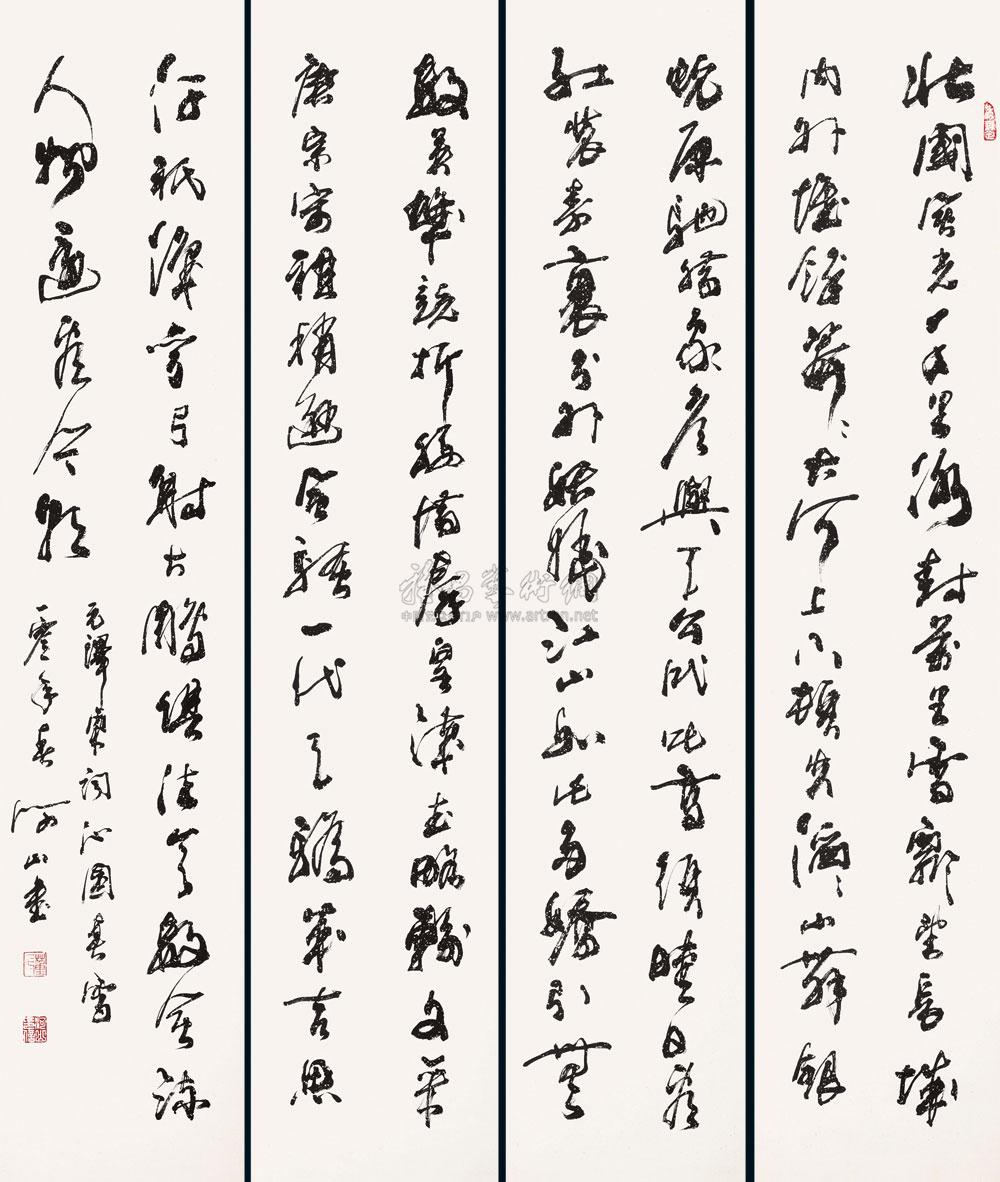 北國風光千里冰封萬里雪飄望長城
內外惟餘莽〻大河上下頓失滔〻山舞銀
蛇原馳蠟象欲與天公試比高須晴日看
紅裝素裹分外妖嬈江山如此多嬌引無
數英雄競折腰惜秦皇漢武略輸文采
唐宗宋祖稍遜風騷一代天驕成吉思
汗祇識彎弓射大雕俱往矣數風流
人物還看今朝
毛澤東詞沁園春雪
零年春 山書
雅昌藝術網
www.artron.net